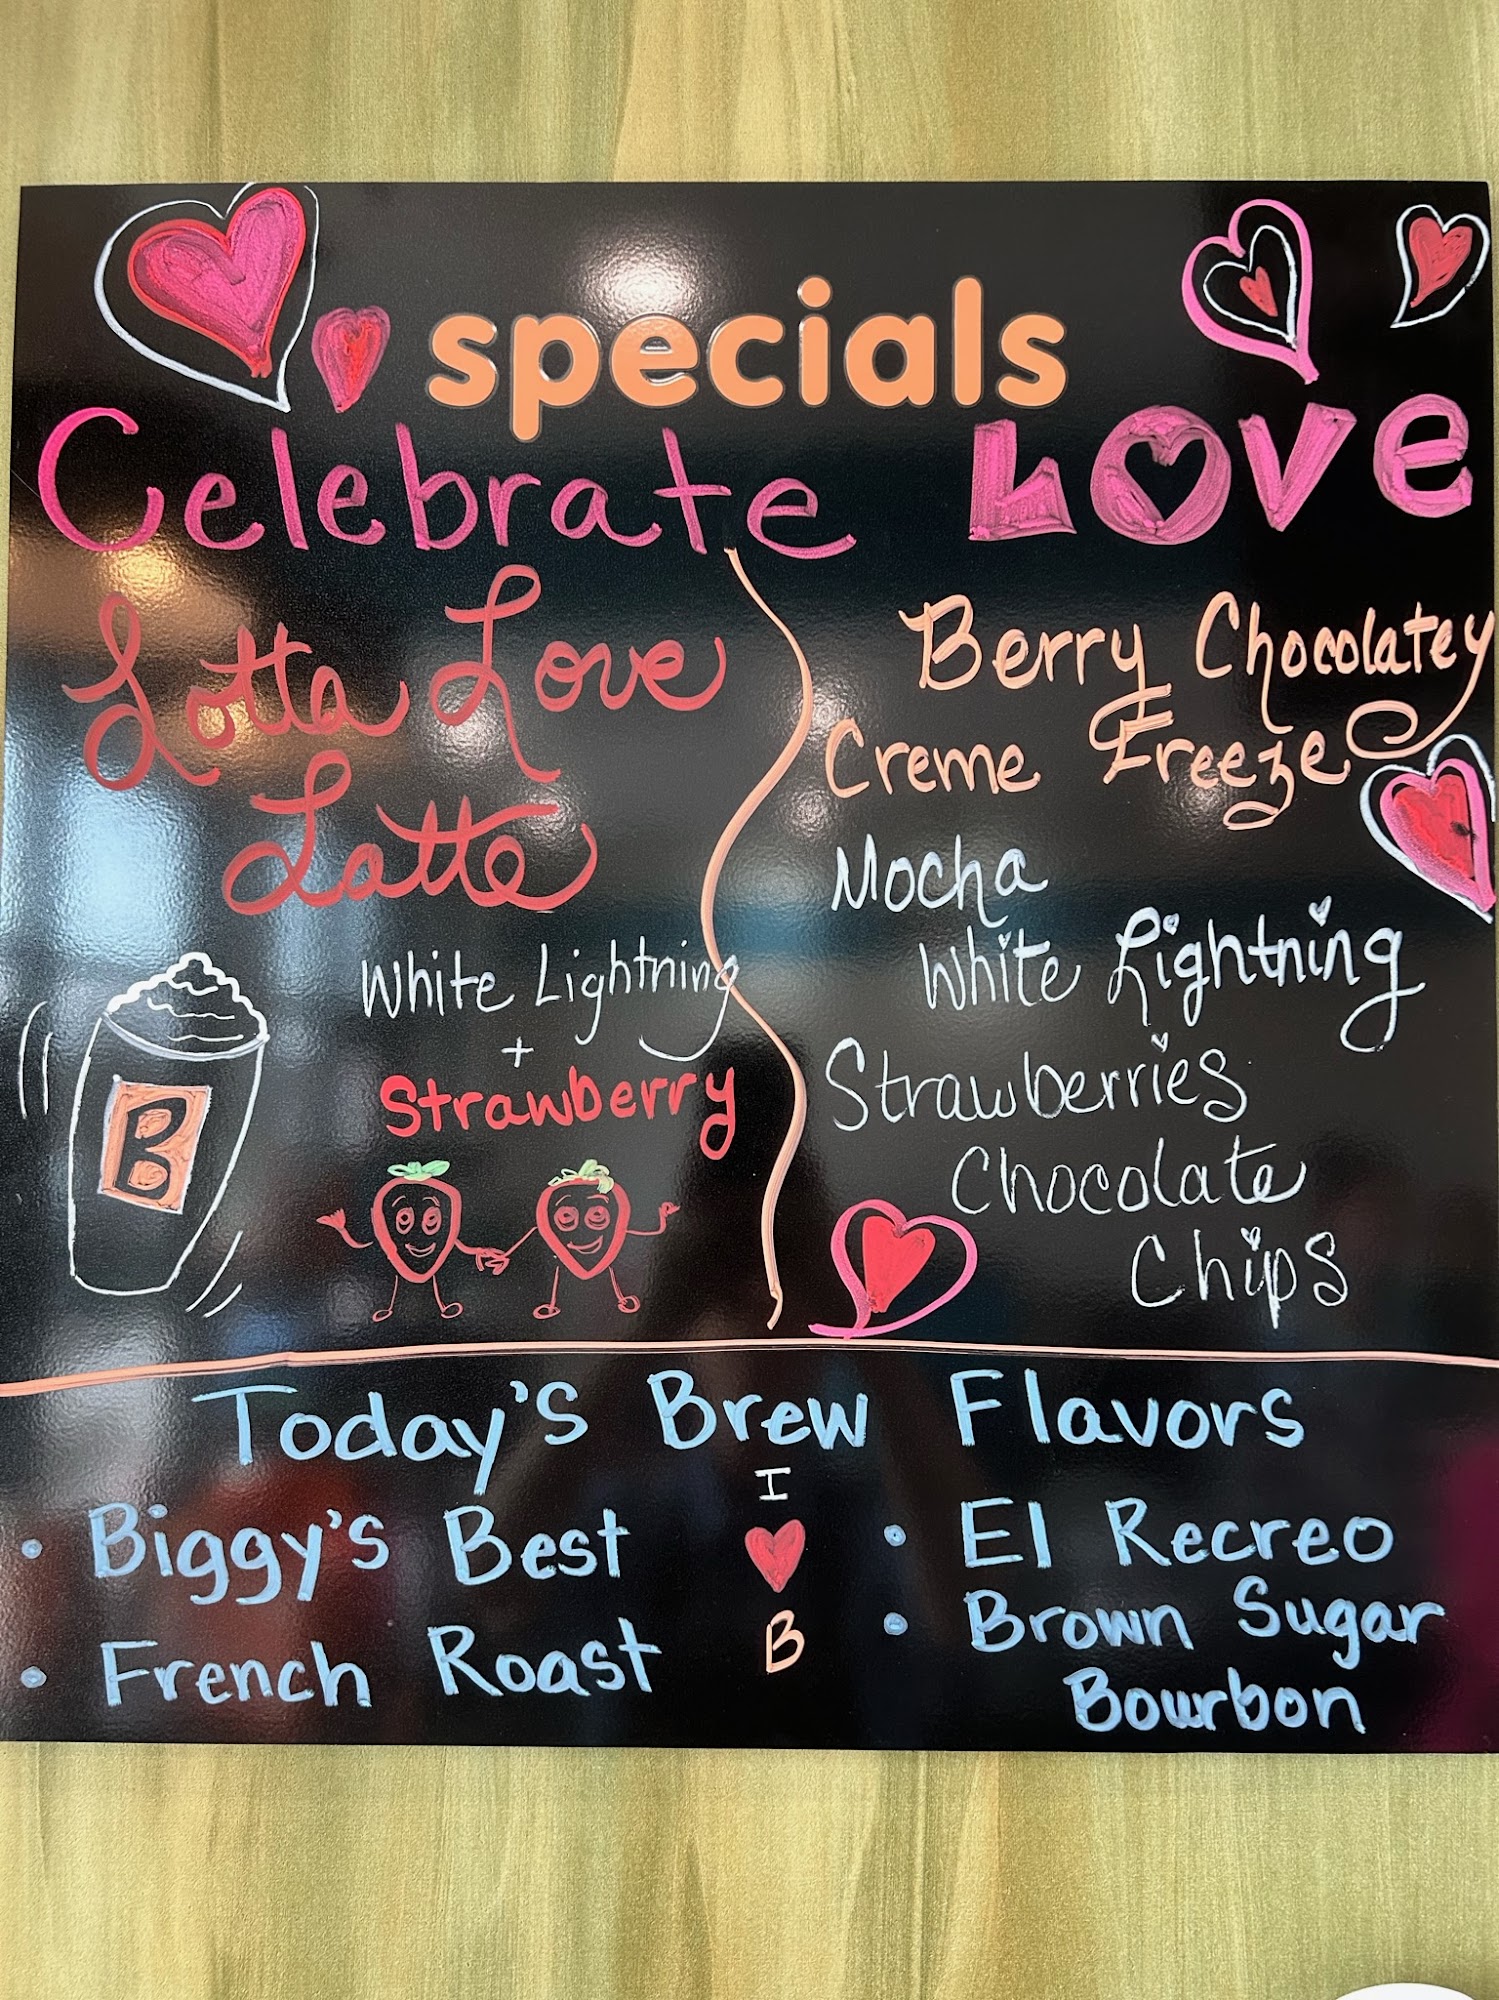 specials
Celebrate LOVe
Lotta Love
Latte
White Lightning
+
Strawberry
B
Berry Chocolatey
Creme Freeze
Mocha
White Lightning
Strawberries
Chocolate
Chips
Today's Brew Flavors
• Biggy's Best
• French Roast
I
♥
B
• El Recreo
• Brown Sugar
Bourbon